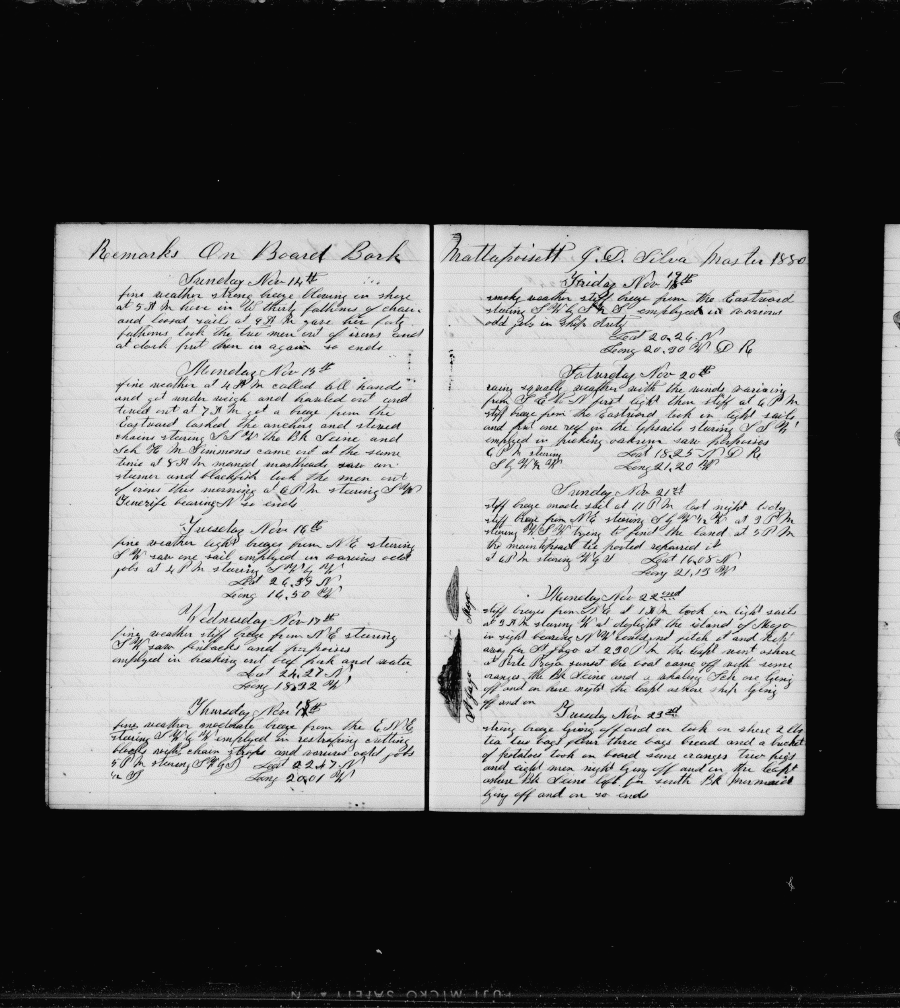 Remarks On Board Bark
Sunday Nov 14th
fine weather strong breeze blowing on shore
at 5 A M hove in to thirty fathoms of chain
and loosed sails at 9 A M gave her forty
fathoms took the two men out of irons and
at dark put them in again so ends
Monday Nov 15th
fine weather at 4 A M called all hands
and got under weigh and hauled out and
out at 7 A M got a breeze from the
Eastward lashed the anchors and stowed
chains steering S S W the Bk Seine and
Sch H M Simmons came out at the same
time at 8 A M maned mastheads saw an
stumer and blackfish took the men out
of irons this morning at 6 P M steering S W
Tenerife bearing N so ends
Tuesday Nov 16th
fine weather light breezes from N E steering
S W saw one sail employed in various odd
jobs at 4 P M steering S W by W
Lat 26,39 N
Long 16,50 W
Wednesday Nov 17th
fine weather stiff breeze from N E steering
S W saw finbacks and porpoises
employed in breaking out beef pork and water
Lat 24,27 N
Long 18,32 W
Thursday Nov 18th
fine weather moderate breeze from the E N E
steering S W by W employed in restraping cutting
blocks with chain straps and various other jobs
5 P M steering S W by S Lat 22,47 N
Long 20,01 W
Mattapoisett J. D. Silva Master 1880
Friday Nov 19th
smoky weather stiff breeze from the Eastward
steering S W by S employed in various
odd jobs in ships duty
Lat 20,24 N
Long 20,30 W D R
Saturday Nov 20th
rainy squally weather with the winds variaing
from S E to N first light then stiff at 6 P M
stiff breeze from the Eastward took in light sails
and put one reef in the topsails steering S S W
employed in picking oakum saw porpoises
6 P M steering Lat 18,25 N D R
S by W ½ W Long 21,20 W
Sunday Nov 21st
stiff breeze made sail at 11 P M last night
stiff breeze from N E steering S by W ½ W at 3 P M
steering W S W trying to find the land at 5 P M
the main topsail tie parted repaired it
at 6 P M steering W by S Lat 16,08 N
Long 21,13 W
Monday Nov 22nd
stiff breezes from N E at 1 A M took in light sails
at 3 A M steering W at daylight the island of Mayo
in sight bearing N W and kept
away for St Jago at 2 30 P M the Capt went ashore
at Porto Praya sunset the boat came off with some
oranges the Bk Seine and a whaling Sch are lying
off and on here night the Capt ashore ship lying
off and on
Tuesday Nov 23rd
strong breeze lying off and on took on shore 2 lbs
tea two bags flour three bags bread and a bucket
of potatoes took on board some oranges two pigs
and eight men night lying off and on the Capt
ashore Bk Seine left for south Bk Mermaid
lying off and on so ends
Mayo
St Jago